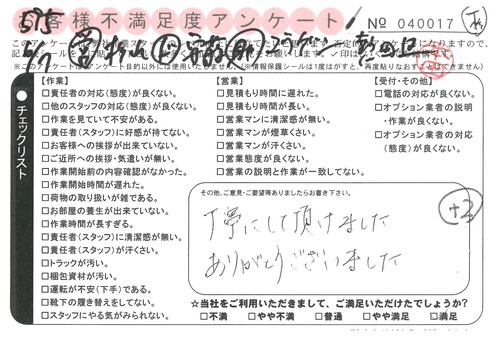 お客様不満足度アンケート
No 040017
【作業】
□責任者の対応(態度)が良くない。
□他のスタッフの対応(態度)が良くない。
□作業を見ていて不安がある。
□責任者(スタッフ)に好感が持てない。
□お客様への挨拶が出来ていない。
□ご近所への挨拶・気遣いが無い。
□作業開始前の内容確認がなかった。
□作業開始時間が遅れた。
□荷物の取り扱いが雑である。
□お部屋の養生が出来ていない。
□作業時間が長すぎる。
□責任者(スタッフ)に清潔感が無い。
□責任者(スタッフ)が汗くさい。
□トラックが汚い。
□梱包資材が汚い。
□運転が不安(下手)である。
□靴下の履き替えをしてない。
□スタッフにやる気がみられない。
チェックリスト
【営業】
□見積もり時間に遅れた。
□見積もり時間が長い。
□営業マンに清潔感が無い。
□営業マンが煙草くさい。
□営業マンが汗くさい。
□営業態度が良くない。
□営業の説明と作業が一致してない。
【受付・その他】
□電話の対応が良くない。
□オプション業者の説明
・作業が良くない。
□オプション業者の対応
(態度)が良くない。
その他、ご意見・ご要望等ありましたらお書き下さい。
丁寧にして頂けました
ありがとうございました
+2
☆当社をご利用いただきまして、ご満足いただけたでしょうか?
□不満 □やや不満 □普通 □やや満足 □満足